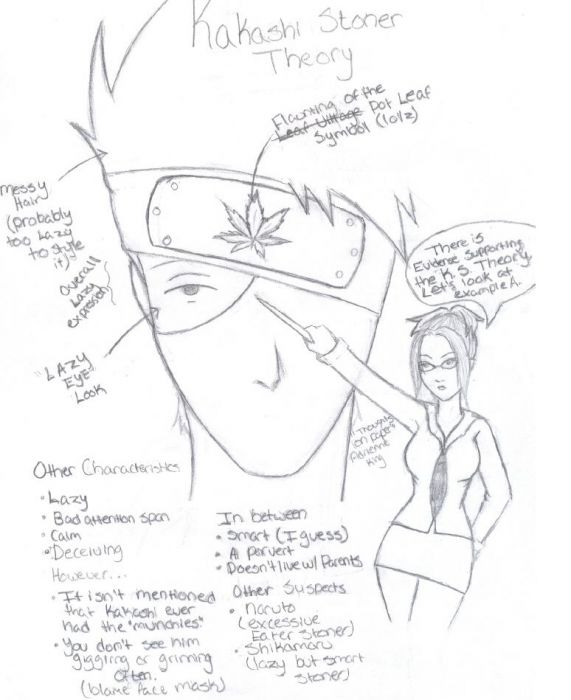 Kakashi Stoner
Theory
Flaunting of the
Leaf Village Pot Leaf
Symbol (lolz)
messy
Hair
(probably
too Lazy
to style
it)
Overall
Lazy
expression
"LAZY
EYE"
Look
There is
Evidence Supporting
the K.S. Theory.
Let's look at
example A.
Thoughts
on paper
King
Other Characteristics
• Lazy
• Bad attention span
• Calm
• Deceiving
However...
• It isn't mentioned
that Kakashi ever
had the "munchies"
• You don't see him
giggling or grinning
Often.
(blame face mask)
In between
• Smart (I guess)
• A pervert
• Doesn't live w/ Parents
Other Suspects
• Naruto
(excessive
Eater stoner)
• Shikamaru
(lazy but smart
stoner)